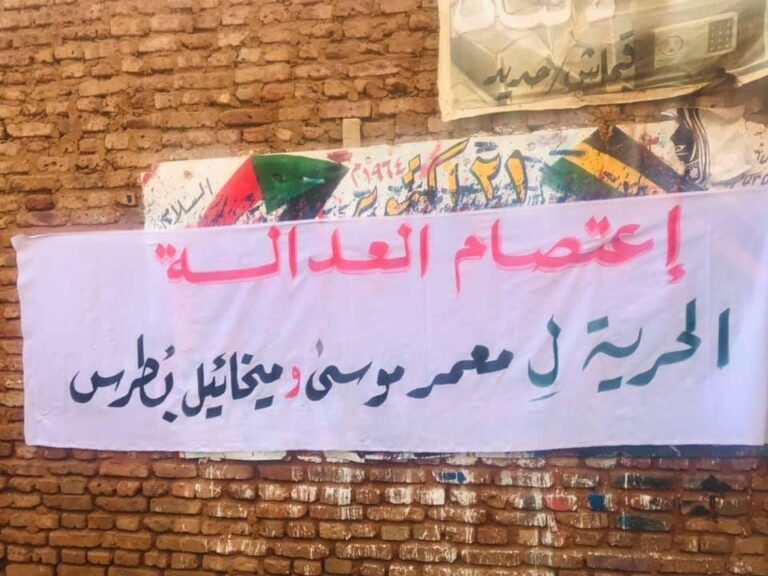 قماش/حديد
٢١ أكتوبر ١٩٦٤
السلام
إعتصام العدالة
الحرية لِ معمر موسى و ميخائيل بُطرس